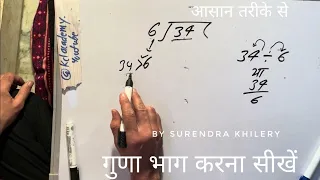 आसान तरीके से
@Kilacademy
Youtube
6 ⟌ 34 (
34 > 6
34 ÷ 6
या
34
6
BY SURENDRA KHILERY
गुणा भाग करना सीखें